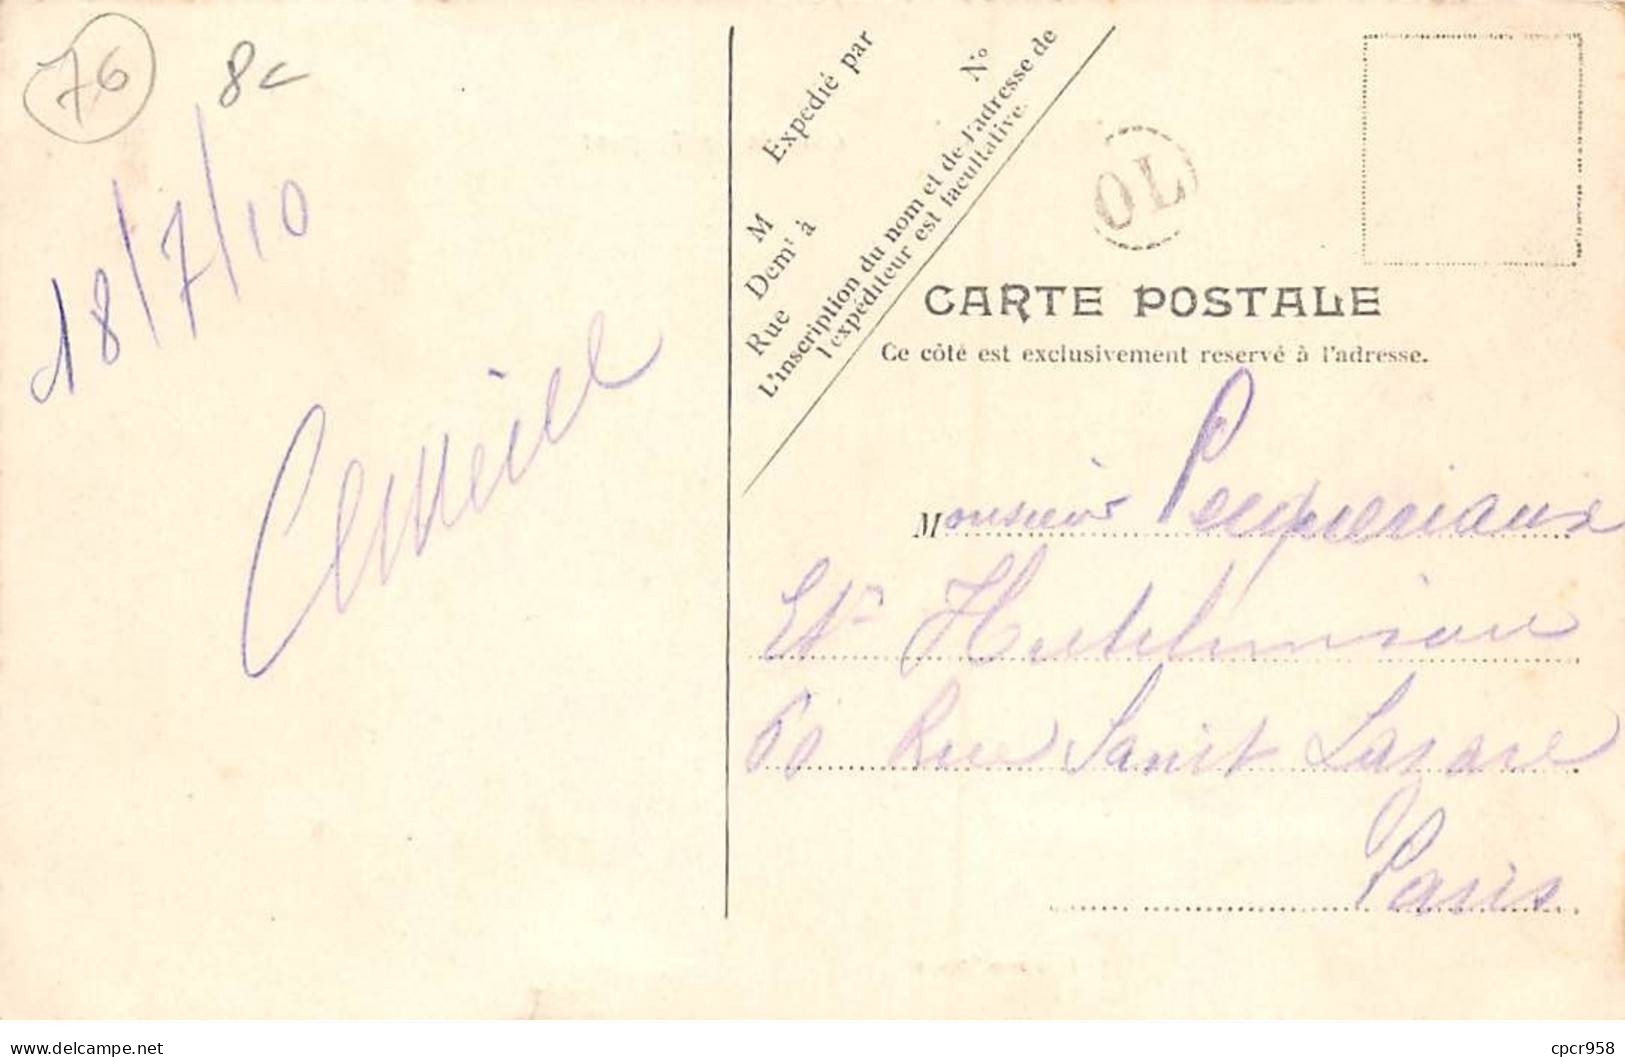 76
8c
18/7/10
Expedié par
M
Demt à
Rue
No
L'inscription du nom et de l'adresse de
l'expéditeur est facultative.
OL
CARTE POSTALE
Ce côté est exclusivement reservé à l'adresse.
Monsieur
Ets Hutchinson
60 Rue Saint Lazare
Paris
www.delcampe.net
cpcr958